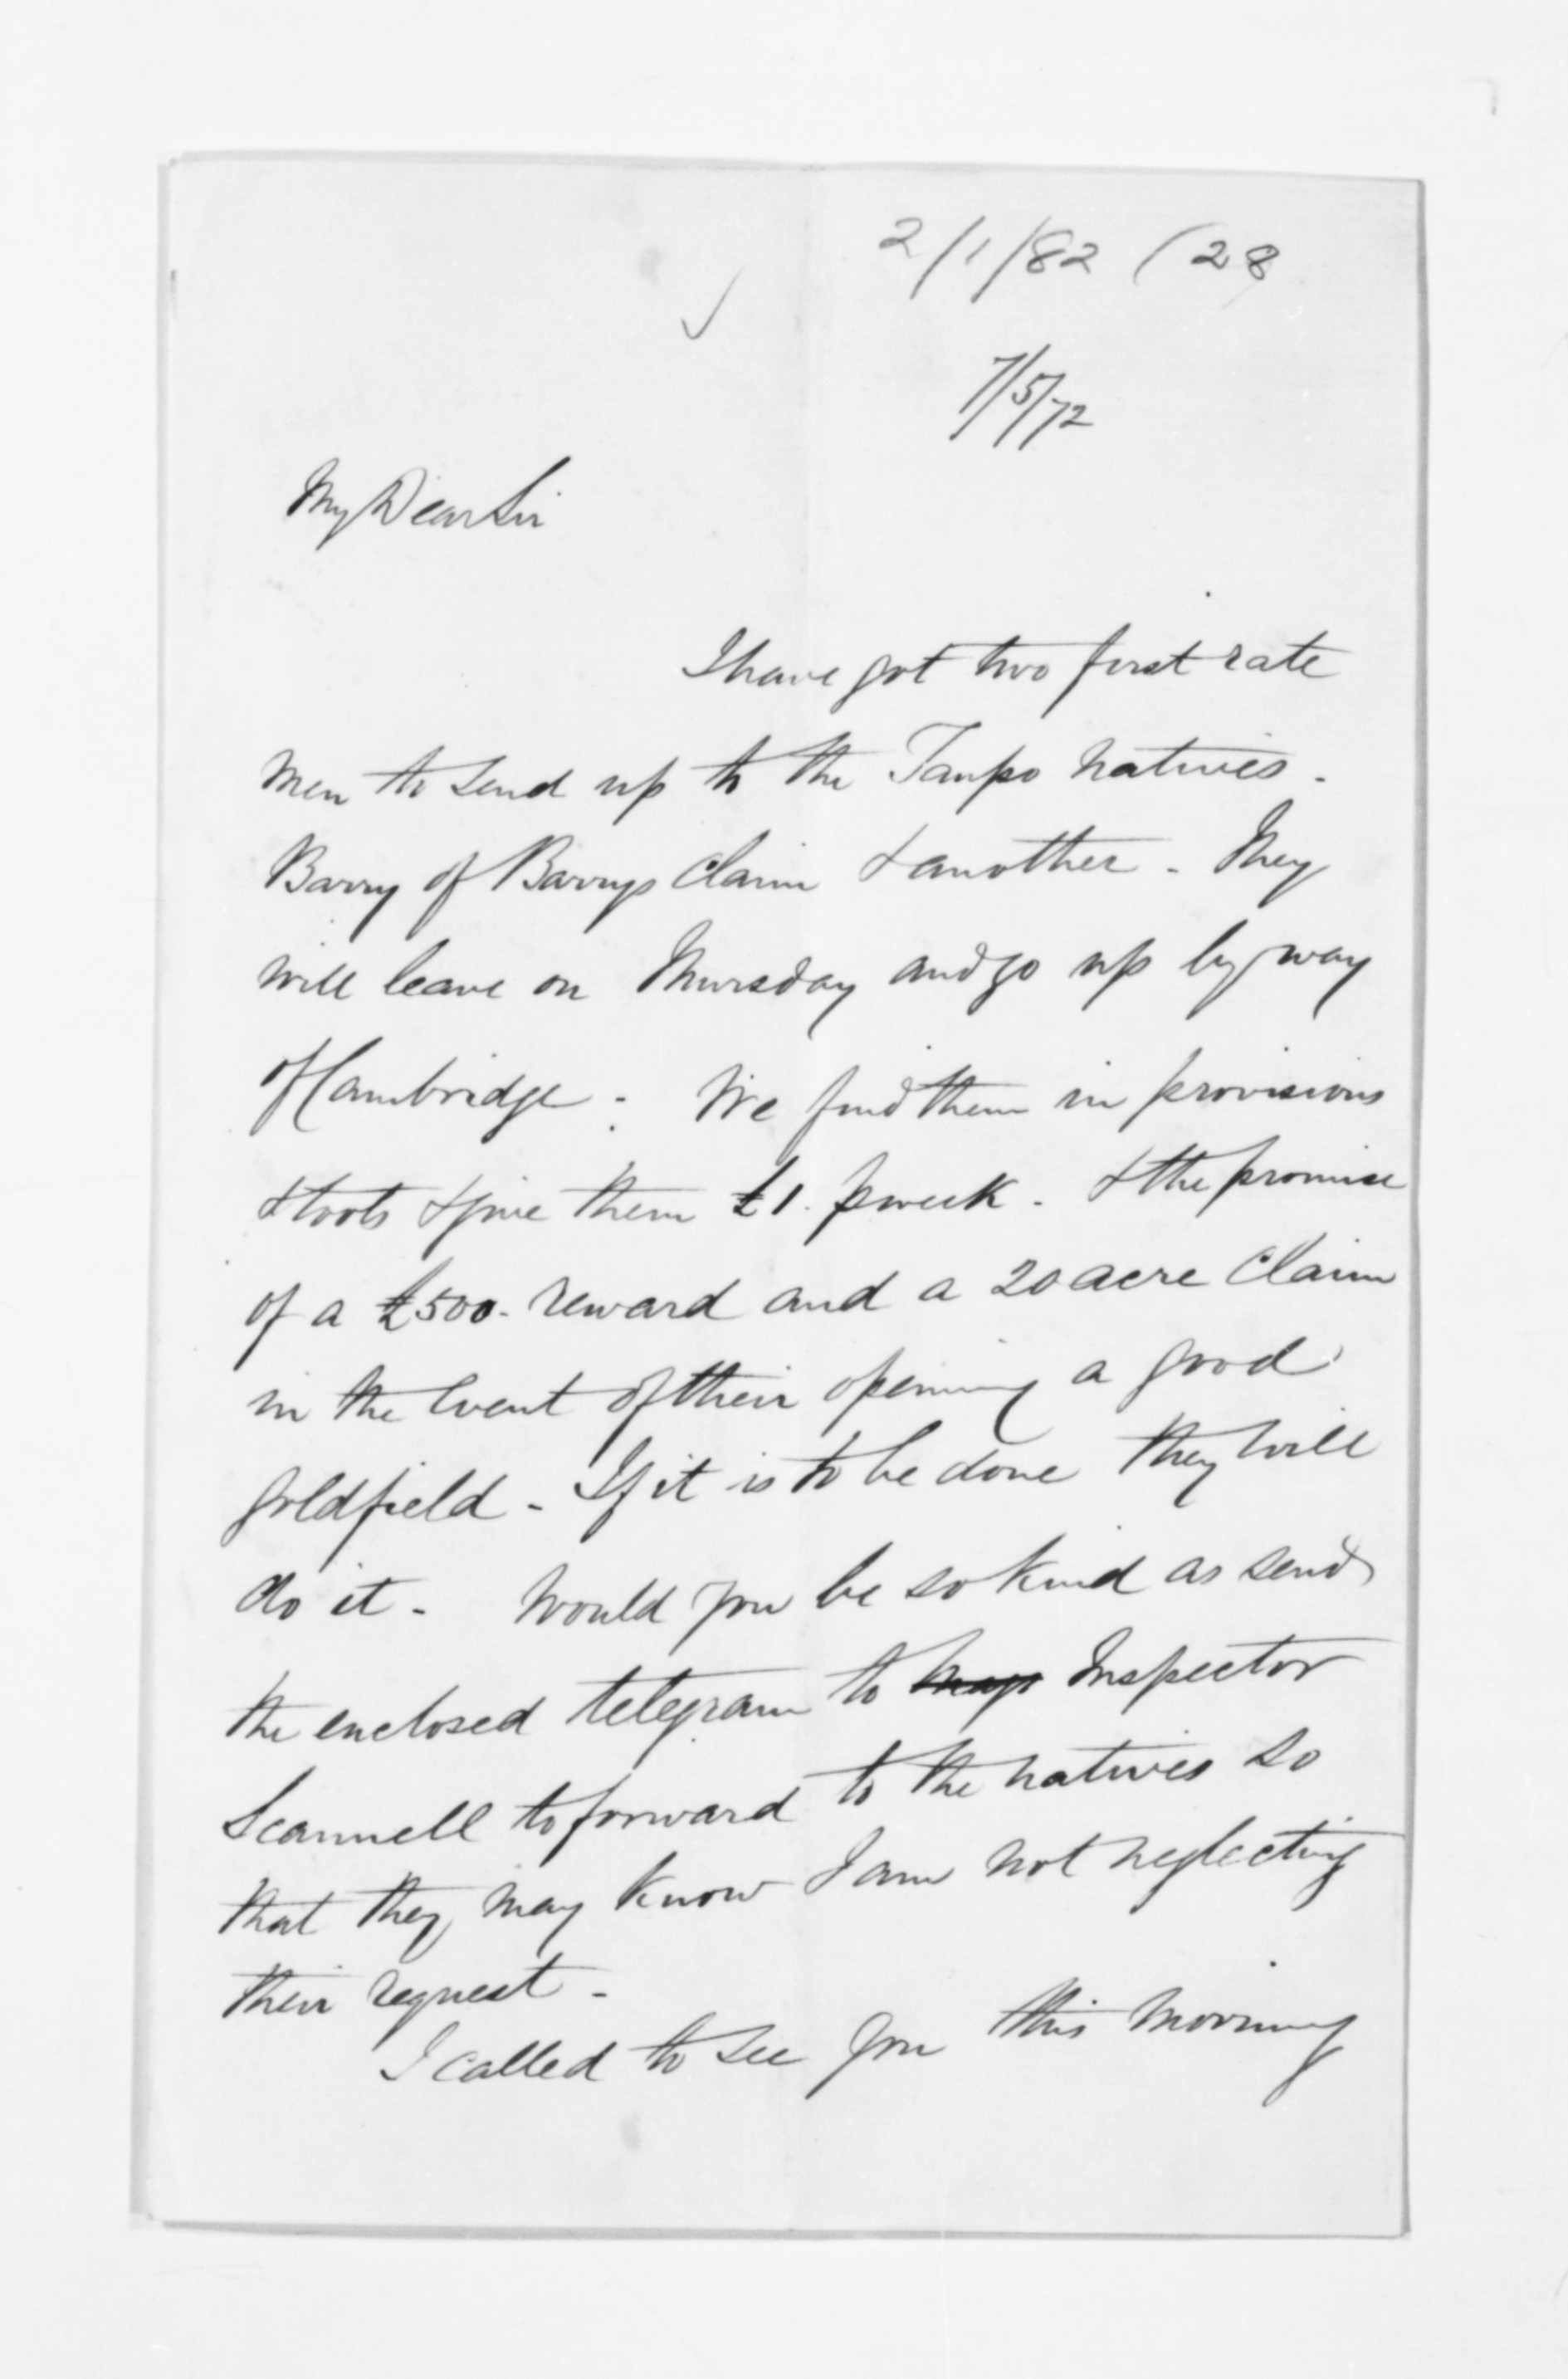 2/1/82 (28
7/5/72
My Dear Sir
I have got two first rate
men to send up to the Taupo natives -
Barry of Barrys Claim & another - They
will leave on Thursday and go up by way
of Cambridge - We find them in provisions
& tools & give them £1. p week - & the promise
of a £500 - reward and a 20 acre Claim
in the event of their opening a good
goldfield - If it is to be done they will
do it - Would you be so kind as send
the enclosed telegram to Inspector
Scannell to forward to the natives so
that they may know I am not neglecting
their request -
I called to see you this morning